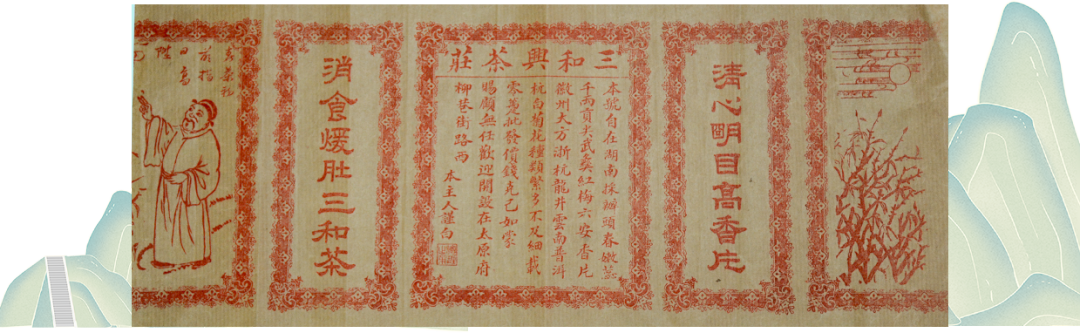 清心明目高香片
三和興茶莊
本號自在湖南採辦頭春嫩蕊
千兩貢尖武彝紅梅六安香片
徽州大方浙杭龍井雲南普洱
杭白菊花種類繁多不及細載
零躉批發價錢克己如蒙
賜顧無任歡迎開設在太原府
柳巷街路西 本主人謹白
消食煖肚三和茶
指
日高
陞